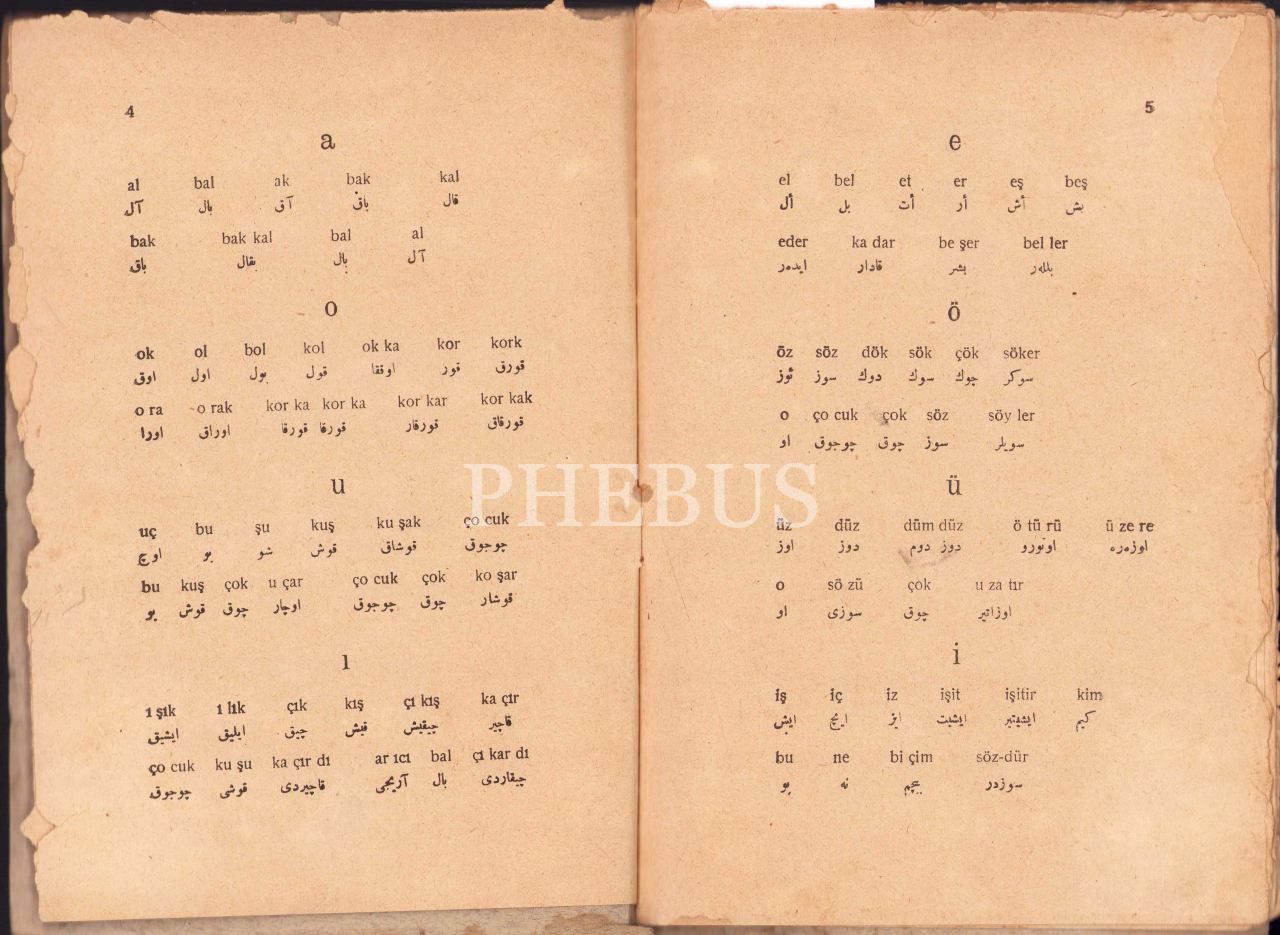 4
a
al bal ak bak kal
آل بال آق باق قال
bak bak kal bal al
باق بقال بال آل
o
ok ol bol kol ok ka kor kork
اوق اول بول قول اوققا قور قورق
o ra o rak kor ka kor ka kor kar kor kak
اورا اوراق قورقا قورقا قورقار قورقاق
u
uç bu şu kuş ku şak ço cuk
اوچ بو شو قوش قوشاق چوجوق
bu kuş çok u çar ço cuk çok ko şar
بو قوش چوق اوچار چوجوق چوق قوشار
ı
ı şık ı lık çık kış çı kış ka çır
ايشيق ايليق چيق قيش چيقيش قاچير
ço cuk ku şu ka çır dı ar ıcı bal çı kar dı
چوجوق قوشی قاچيردی آريجی بال چيقاردی
5
e
el bel et er eş beş
أل بل أت أر أش بش
eder ka dar be şer bel ler
ايدەر قادار بشر بللەر
ö
öz söz dök sök çök söker
ئوز سوز دوك سوك چوك سوكر
o ço cuk çok söz söy ler
او چوجوق چوق سوز سويلر
ü
üz düz düm düz ö tü rü ü ze re
اوز دوز دوم دوز اوتورو اوزەرە
o sö zü çok u za tır
او سوزی چوق اوزاتير
i
iş iç iz işit işitir kim
ايش ايچ ايز ايشيت ايشيتير كيم
bu ne bi çim söz-dür
بو نه بيچم سوزدر
PHEBUS